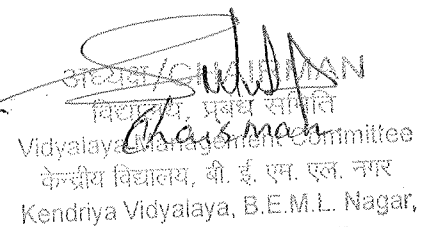 अध्यक्ष/CHAIRMAN
विद्यालय, प्रबंध समिति
Chairman
Vidyalaya Management Committee
केन्द्रीय विद्यालय, बी. ई. एम. एल. नगर
Kendriya Vidyalaya, B.E.M.L. Nagar,